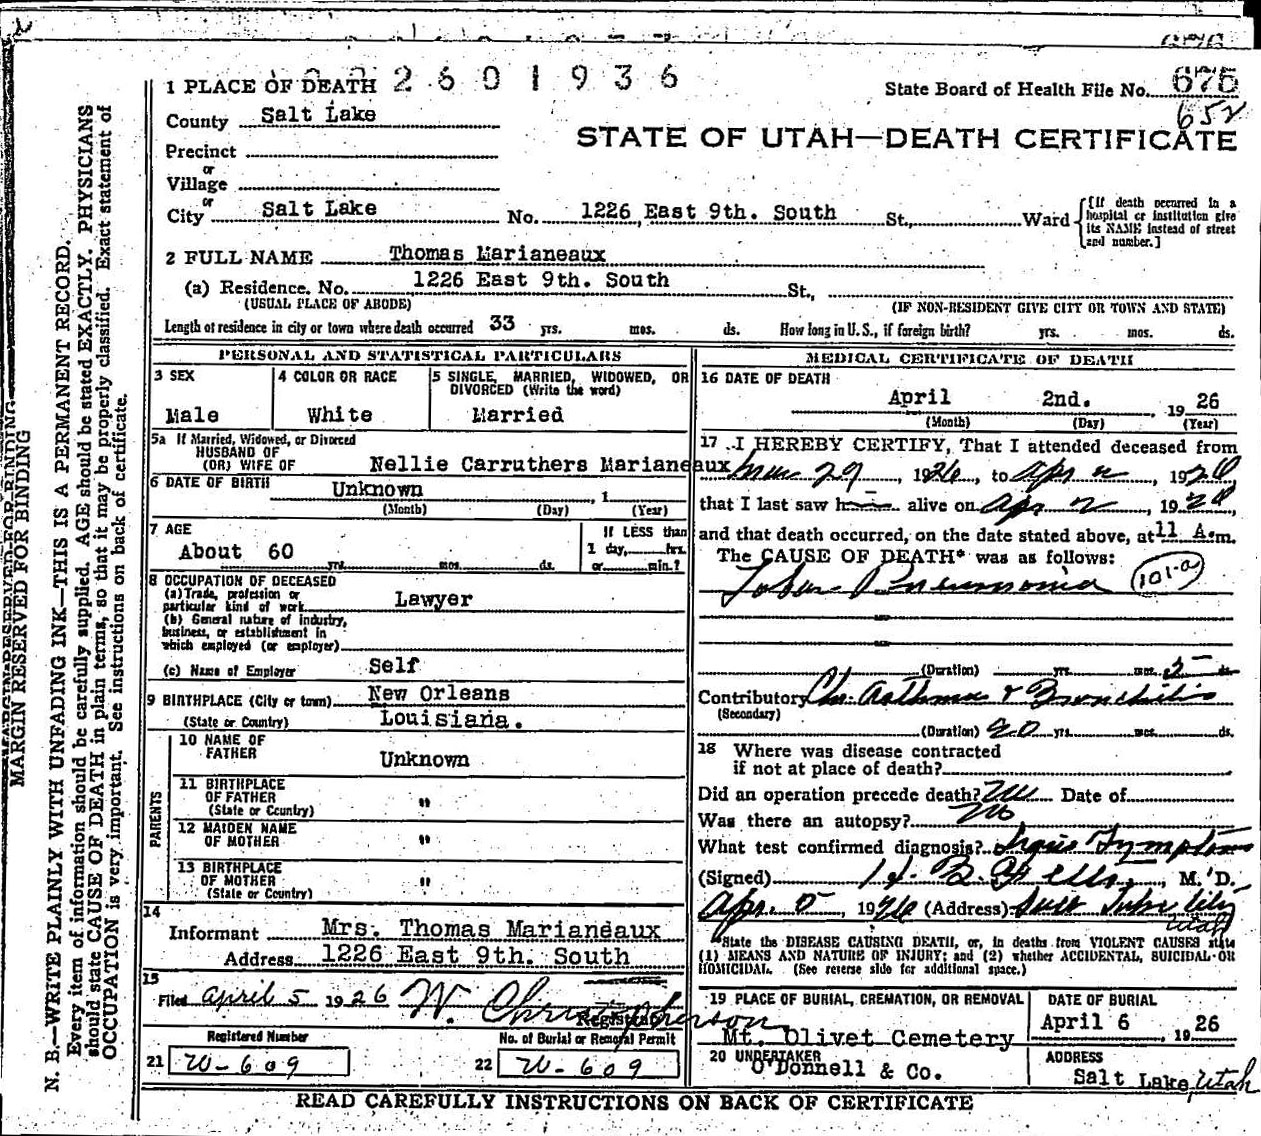 2601936
1 PLACE OF DEATH
State Board of Health File No. 676
652
County Salt Lake
STATE OF UTAH—DEATH CERTIFICATE
Precinct
or
Village
or
City Salt Lake No. 1226 East 9th. South St., Ward {[If death occurred in a hospital or institution give its NAME instead of street and number.]
2 FULL NAME Thomas Marianeaux
(a) Residence. No. 1226 East 9th. South St.,
(USUAL PLACE OF ABODE) (IF NON-RESIDENT GIVE CITY OR TOWN AND STATE)
Length of residence in city or town where death occurred 33 yrs. mos. ds. How long in U. S., if foreign birth? yrs. mos. ds.
PERSONAL AND STATISTICAL PARTICULARS
3 SEX
Male
4 COLOR OR RACE
White
5 SINGLE, MARRIED, WIDOWED, OR
DIVORCED (Write the word)
Married
5a If Married, Widowed, or Divorced
HUSBAND OF
(OR) WIFE OF Nellie Carruthers Marianeaux
6 DATE OF BIRTH Unknown , 1
(Month) (Day) (Year)
7 AGE
About 60 yrs. mos. ds.
If LESS than
1 day, hrs.
or min.?
8 OCCUPATION OF DECEASED
(a) Trade, profession or
particular kind of work Lawyer
(b) General nature of industry,
business, or establishment in
which employed (or employer)
(c) Name of Employer Self
9 BIRTHPLACE (City or town) New Orleans
(State or Country) Louisiana.
PARENTS
10 NAME OF
FATHER Unknown
11 BIRTHPLACE
OF FATHER "
(State or Country)
12 MAIDEN NAME
OF MOTHER "
13 BIRTHPLACE
OF MOTHER "
(State or Country)
14
Informant Mrs. Thomas Marianeaux
Address 1226 East 9th. South
15
Filed April 5 1926 W. Christopherson
Registrar
Registered Number
21 W-609
No. of Burial or Removal Permit
22 W-609
MEDICAL CERTIFICATE OF DEATH
16 DATE OF DEATH
April 2nd. , 1926
(Month) (Day) (Year)
17 I HEREBY CERTIFY, That I attended deceased from
Mar 29, 1926, to Apr 2, 1926
that I last saw h alive on Apr 2, 1926,
and that death occurred, on the date stated above, at 11 A.m.
The CAUSE OF DEATH* was as follows:
Lobar Pneumonia 101-a
(Duration) yrs. mos. 5 ds.
Contributory Chr. Asthma & Bronchitis
(Secondary)
(Duration) 20 yrs. mos. ds.
18 Where was disease contracted
if not at place of death?
Did an operation precede death? No Date of
Was there an autopsy? No
What test confirmed diagnosis? Signs Symptoms
(Signed) , M. D.
Apr. 5, 1926 (Address) Salt Lake City
Utah
*State the DISEASE CAUSING DEATH, or, in deaths from VIOLENT CAUSES state
(1) MEANS AND NATURE OF INJURY; and (2) whether ACCIDENTAL, SUICIDAL OR
HOMICIDAL. (See reverse side for additional space.)
19 PLACE OF BURIAL, CREMATION, OR REMOVAL
Mt. Olivet Cemetery
DATE OF BURIAL
April 6 , 1926
20 UNDERTAKER
O'Donnell & Co.
ADDRESS
Salt Lake, Utah
READ CAREFULLY INSTRUCTIONS ON BACK OF CERTIFICATE
MARGIN RESERVED FOR BINDING
N. B.—WRITE PLAINLY WITH UNFADING INK—THIS IS A PERMANENT RECORD.
Every item of information should be carefully supplied. AGE should be stated EXACTLY. PHYSICIANS
should state CAUSE OF DEATH in plain terms, so that it may be properly classified. Exact statement of
OCCUPATION is very important. See instructions on back of certificate.